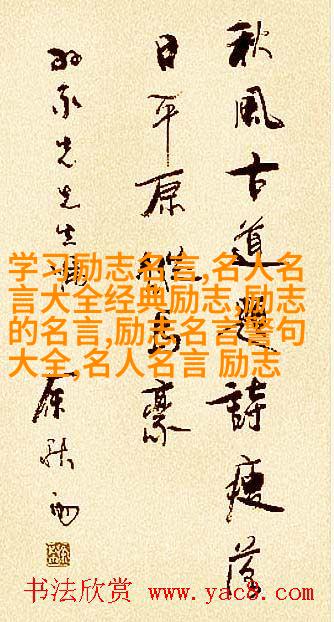 秋風古道題詩瘦落
日平原縱馬豪
先生
余秋雨
学习励志名言,名人名
言大全经典励志,励志
的名言,励志名言警句
大全,名人名言 励志
书法欣赏 www.yac8.com